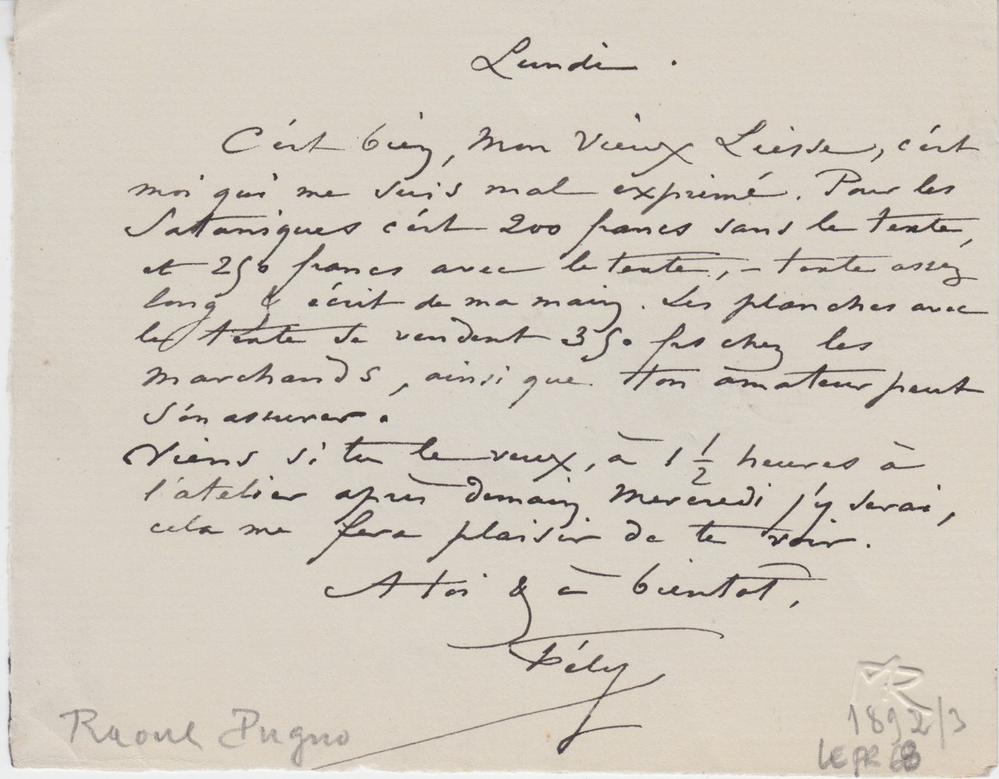 Lundi.
C'est bien, mon vieux Liesse, c'est
moi qui me suis mal exprimé. Pour les
Sataniques c'est 200 francs sans le texte,
et 250 francs avec le texte, - texte assez
long & écrit de ma main. Les planches avec
le texte se vendent 350 frs chez les
marchands, ainsi que ton amateur peut
s'en assurer.
Viens si tu le veux, à 1 1/2 heures à
l'atelier après demain Mercredi j'y serai,
cela me fera plaisir de te voir.
A toi & à bientot,
Fély
MR
Raoul Pugno
1892/3